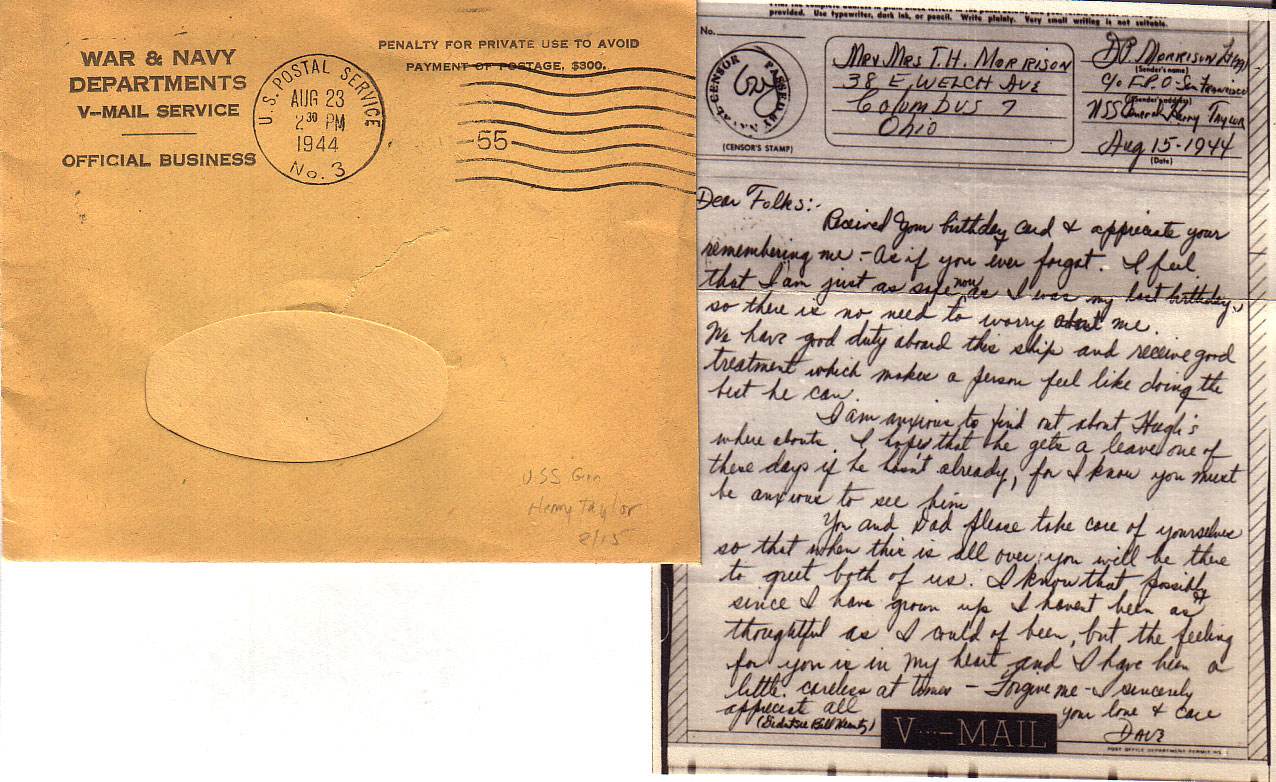 WAR & NAVY
DEPARTMENTS
V--MAIL SERVICE
OFFICIAL BUSINESS
U.S. POSTAL SERVICE
AUG 23
2 30 PM
1944
No. 3
PENALTY FOR PRIVATE USE TO AVOID
PAYMENT OF POSTAGE, $300.
55
U.S.S Gen
Henry Taylor
8/15
provided. Use typewriter, dark ink, or pencil. Write plainly. Very small writing is not suitable.
No.
PASSED BY NAVAL CENSOR
(CENSOR'S STAMP)
Mr & Mrs T. H. MORRISON
38 E. WELCH AVE
Columbus 7
Ohio
D.P. MORRISON
(Sender's name)
c/o F.P.O San Francisco
(Sender's address)
USS General Henry TAYLOR
Aug 15-1944
(Date)
Dear Folks:-
Received your birthday card & appreciate your
remembering me - As if you ever forgot. I feel
that I am just as safe now as I was my last birthday,
so there is no need to worry about me.
We have good duty aboard this ship and receive good
treatment which makes a person feel like doing the
best he can.
I am anxious to find out about Hugh's
where abouts. I hope that he gets a leave one of
these days if he hasn't already, for I know you must
be anxious to see him
You and Dad please take care of yourselves
so that when this is all over, you will be there
to greet both of us. I know that possibly
since I have grown up I havent been as
thoughtful as I could of been, but the feeling
for you is in my heart and I have been a
little careless at times - Forgive me - I sincerely
appreciate all your love & care
(Did I see Bill
DAVE
V···-MAIL
POST OFFICE DEPARTMENT PERMIT NO.